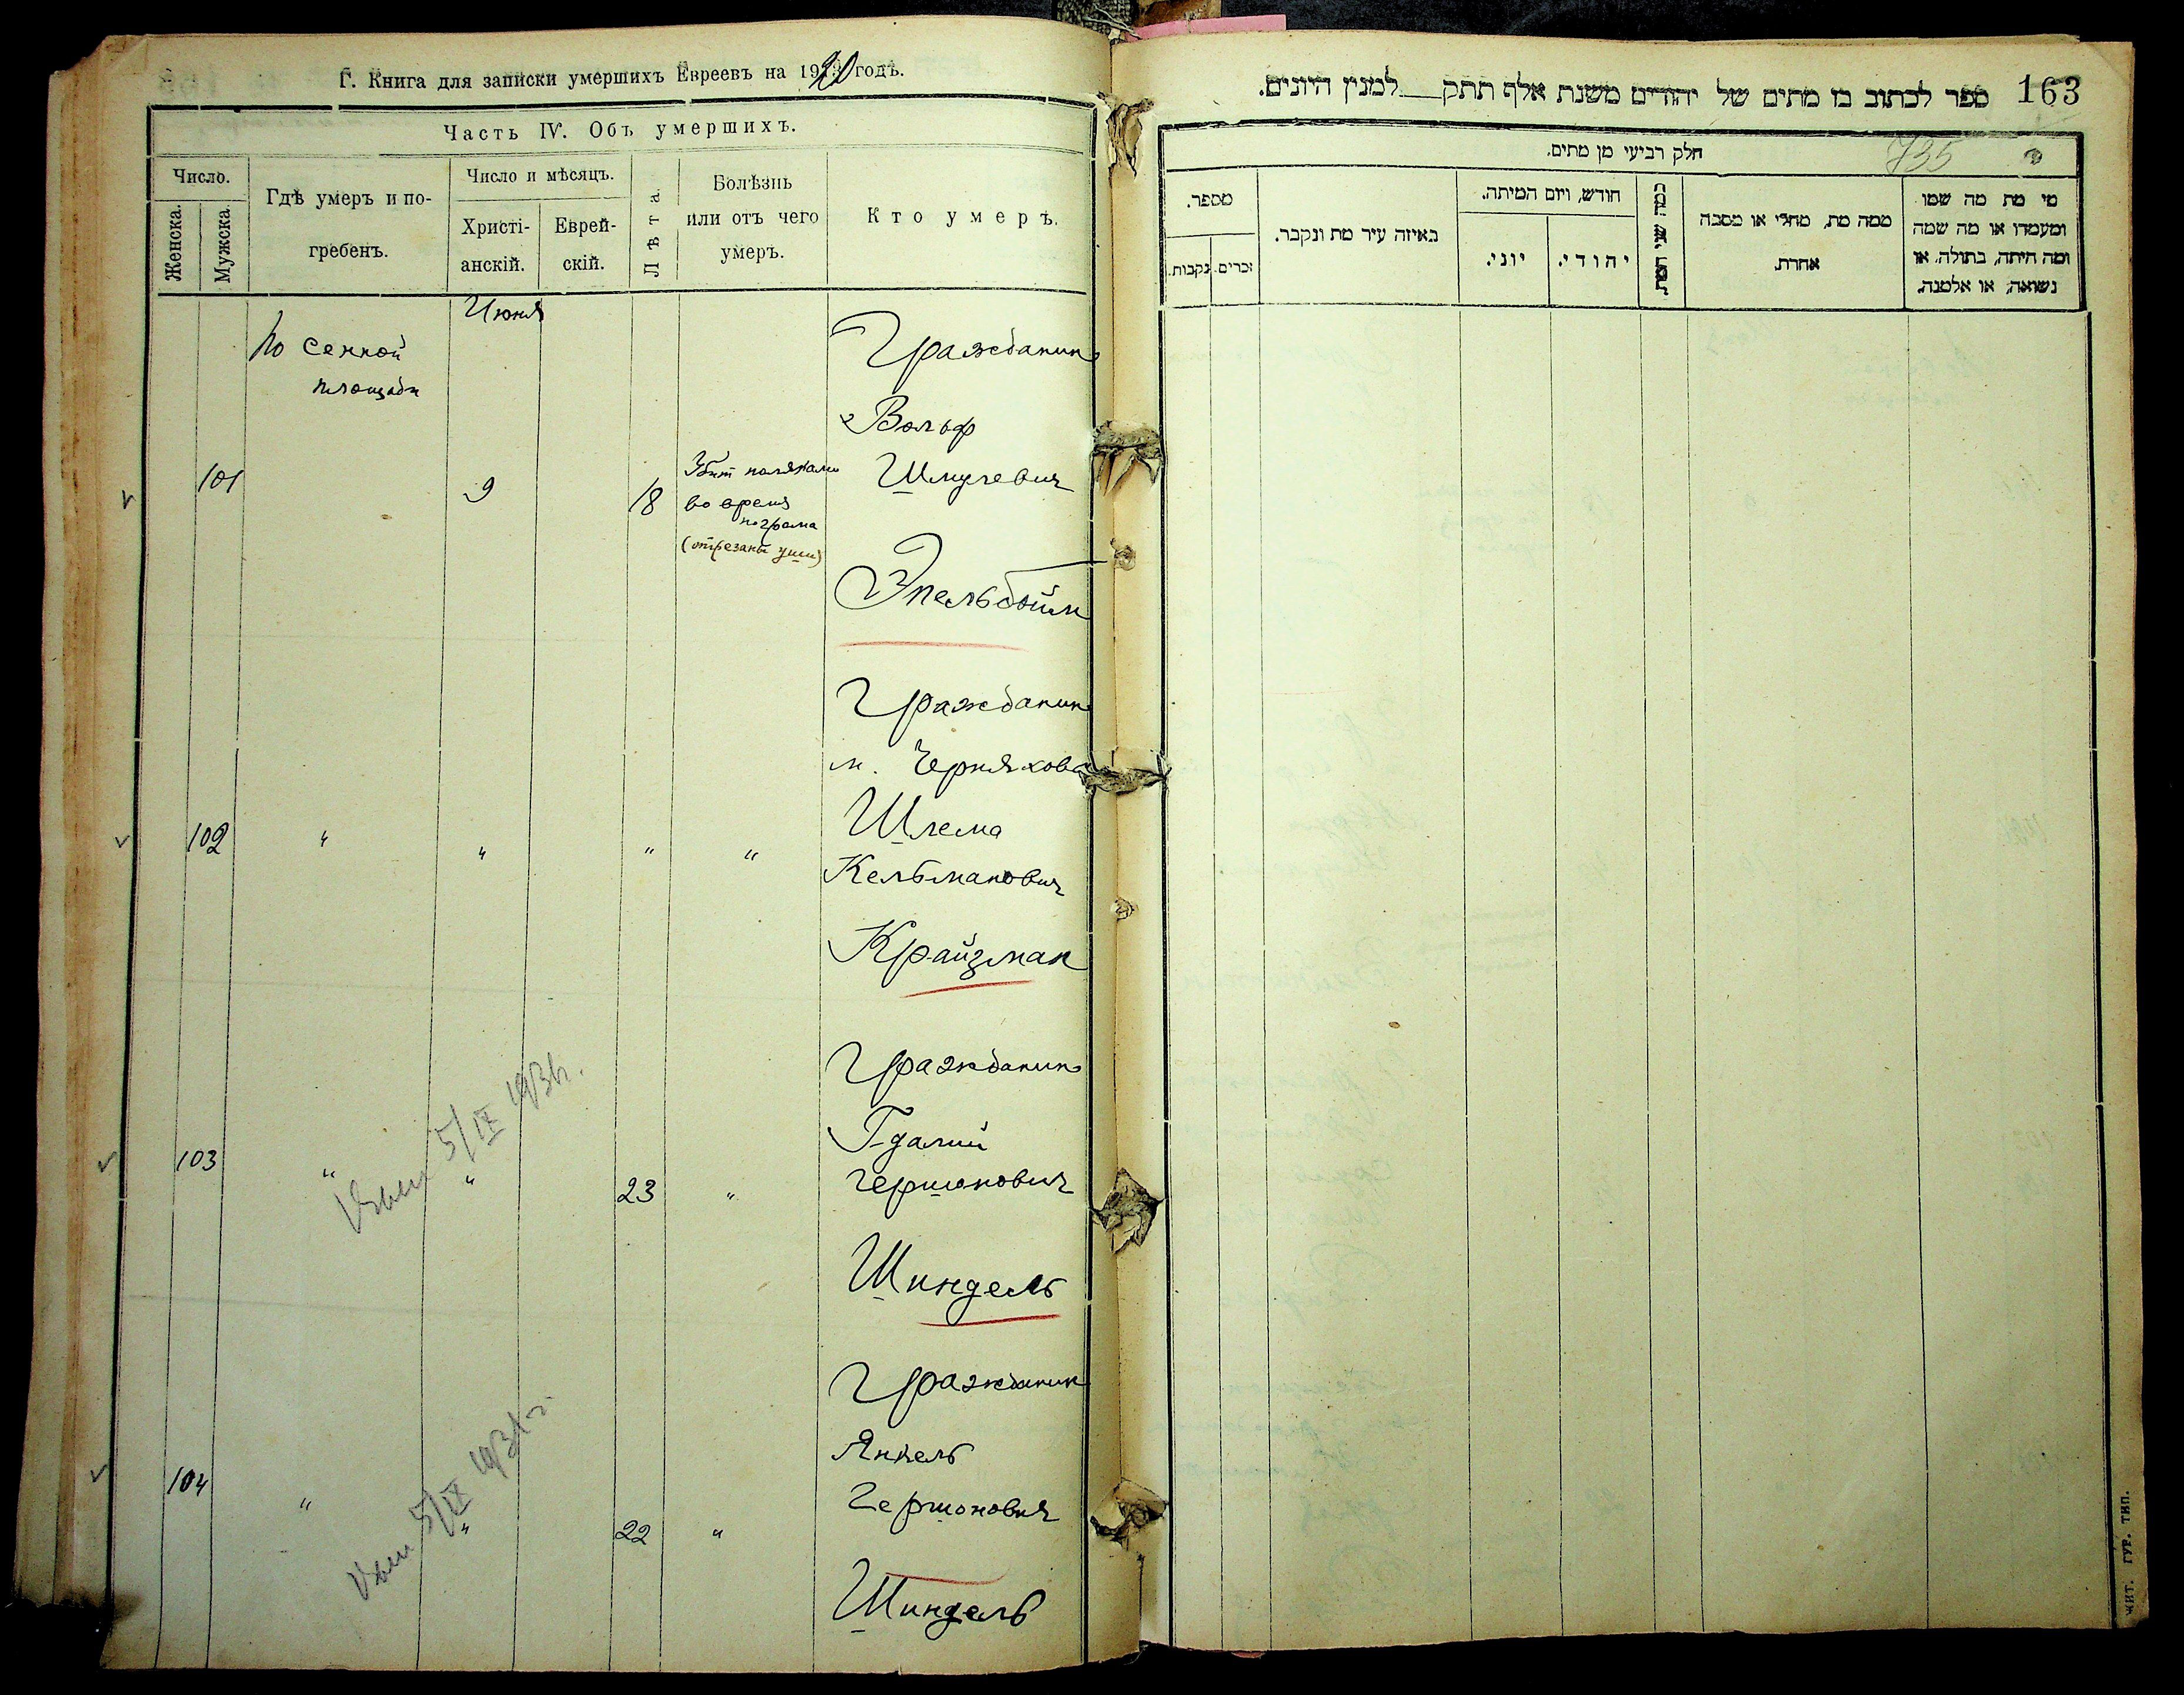 Г. Книга для записки умершихъ Евреевъ на 1920 годъ.
Часть IV. Объ умершихъ.
Число.
Женска.
Мужска.
Гдѣ умеръ и по-
гребенъ.
Число и мѣсяцъ.
Христі-
анскій.
Еврей-
скій.
Лѣта.
Болѣзнь
или отъ чего
умеръ.
Кто умеръ.
Июня
По Сенной
площади
101
9
18
Убит поляками
во время
погрома
(отрезаны уши)
Гражданин
Вольф
Шмулевич
Эпельбойм
102
"
"
"
"
Гражданин
м. Черняхова
Шлема
Кельманович
Крайзман
103
"
"
23
"
Гражданин
Гдалий
Гершонович
Шиндель
5/IX 1931г.
104
"
"
22
"
Гражданин
Янкель
Гершонович
Шиндель
5/IX 1931г.
ספר לכתוב בו מתים של יהודים משנת אלף תתק למנין היונים.
163
735
חלק רביעי מן מתים.
מספר.
נקבות.
זכרים.
באיזה עיר מת ונקבר.
חודש, ויום המיתה.
יוני.
יהודי.
ממה מת, מחלי או מסבה
אחרת.
מי מת מה שמו
ומעמדו או מה שמה
ומה היתה, בתולה, או
נשואה, או אלמנה.
ЖИТ. ГУР. ТИП.